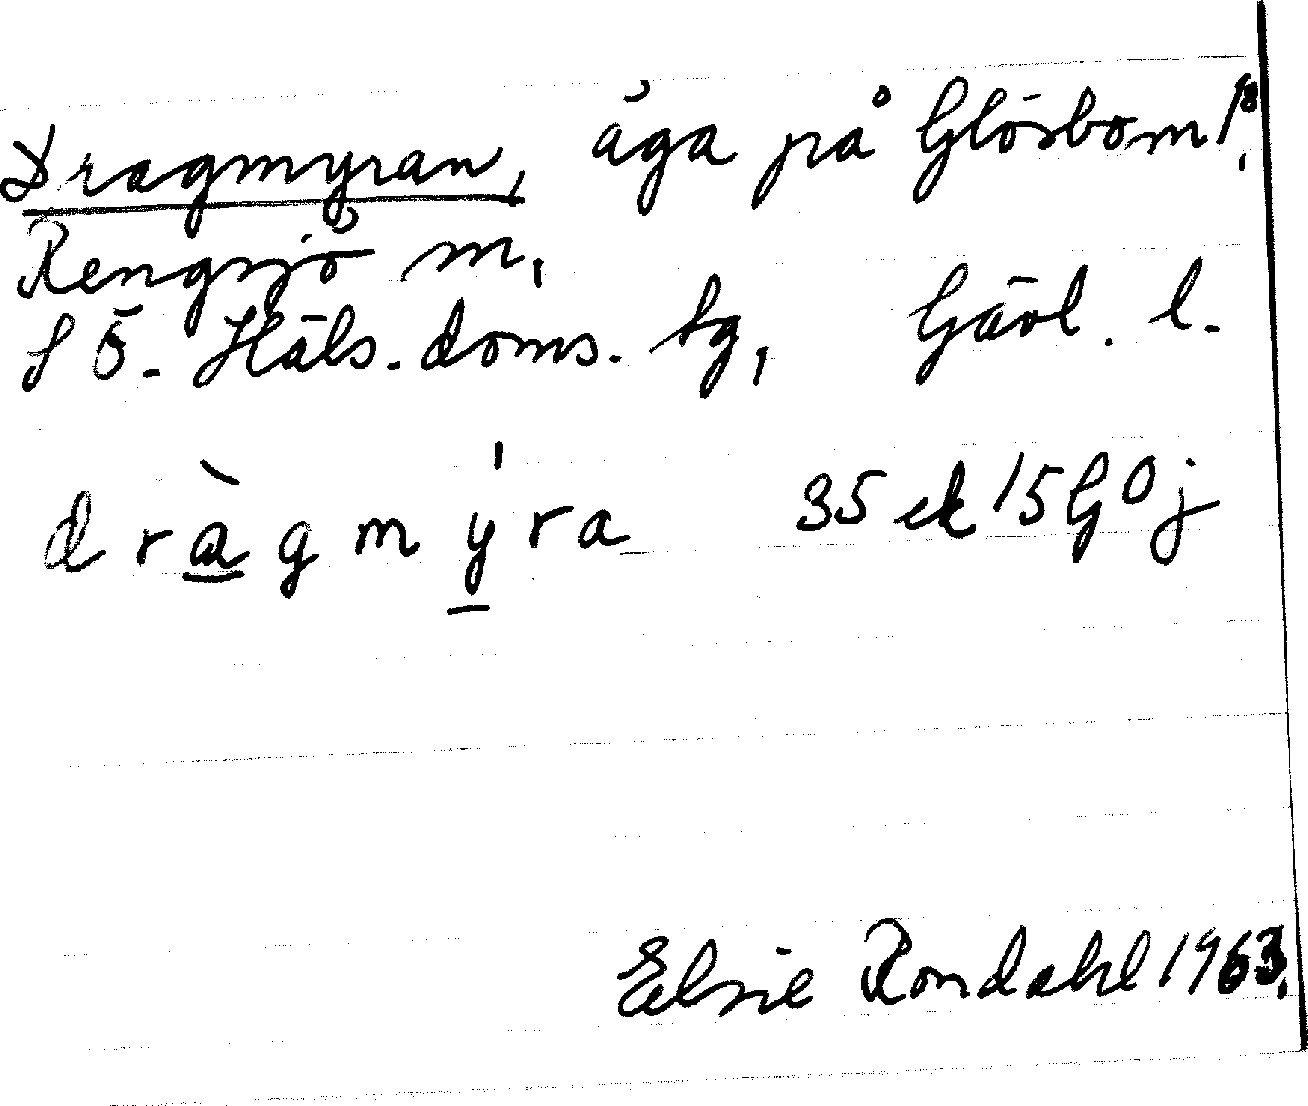 Dragmyran, äga på Glösbom 1⁸.
Rengsjö sn,
S Ö. Häls. doms. tg, Gävl. l.
dràgmýra 35 ek 15 G 0 j
Elsie Rondahl 1963.